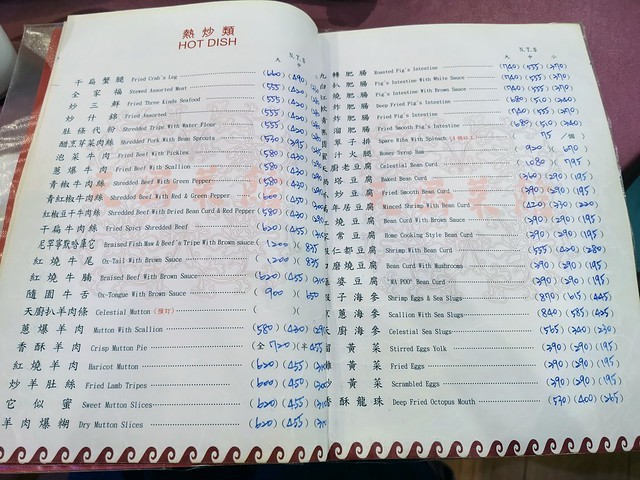 熱炒類
HOT DISH
N.T.$
大 中
干扁蟹腿 Fried Crab's Leg (660)(490)
全家福 Stewed Assorted Meat
炒三鮮 Fried Three Kinds Seafood (555)(420)
炒什錦 Fried Assorted (555)(420)
肚條代粉 Shredded Tripe With Water Flour (555)(420)
醋烹芽菜肉絲 Shredded Pork With Bean Sprouts (530)(395)
泡菜牛肉 Fried Beef With Pickles (580)(430)
蔥爆牛肉 Fried Beef With Scallion (580)(430)
青椒牛肉絲 Shredded Beef With Green Pepper (580)(430)
青紅椒牛肉絲 Shredded Beef With Red & Green Pepper (600)(450)
紅椒豆干牛肉絲 Shredded Beef With Dried Bean Curd & Red Pepper (580)(430)
干扁牛肉絲 Fried Spicy Shredded Beef (620)(455)
Braised Fish Maw & Beef's Tripe With Brown sauce (1200)(835
紅燒牛尾 Ox-Tail With Brown Sauce (1200)(835
紅燒牛腩 Braised Beef With Brown Sauce (620)(455)
隨園牛舌 Ox-Tongue With Brown Sauce (900)(650
天廚扒羊肉條 Celestial Mutton (預訂) ( )(
蔥爆羊肉 Mutton With Scallion (580)(430)
香酥羊肉 Crisp Mutton Pie (全720)(半455
紅燒羊肉 Haricot Mutton (620)(455)
炒羊肚絲 Fried Lamb Tripes (600)(450)
它似蜜 Sweet Mutton Slices (620)(455)
羊肉爆糊 Dry Mutton Slices (620)(455)
N.T.$
大 中 小
轉肥腸 Roasted Pig's Intestine (740)(555)(370)
肥腸 Pig's Intestine With White Sauce (740)(555)(370)
燒肥腸 Pig's Intestine With Brown Sauce (740)(555)(370)
炸肥腸 Deep Fried Pig's Intestine (680)(510)(340)
炒肥腸 Fried Pig's Intestine (740)(555)(370)
溜肥腸 Fried Smooth Pig's Intestine (680)(510)(340)
單子排 Spare Ribs With Spinach 75 /個)
汁火腿 Honey Syrup Ham (920)(670)
廚老豆腐 Celestial Bean Curd (1080)(795)
塔豆腐 Baked Bean Curd (360)(290)(195)
炒豆腐 Fried Smooth Bean Curd (390)(290)(195)
年居豆腐 Minced Shrimp With Bean Curd (420)(330)(220)
燒豆腐 Bean Curd With Brown Sauce (390)(290)(195)
常豆腐 Home Cooking Style Bean Curd (390)(290)(195)
仁都豆腐 Shrimp With Bean Curd (555)(420)(280)
磨燒豆腐 Bean Curd With Mushrooms (390)(290)(195)
婆豆腐 "MA POO" Bean Curd (390)(290)(195)
子海參 Shrimp Eggs & Sea Slugs (890)(615)(445)
蔥海參 Scallion With Sea Slugs (840)(585)(425)
廚海參 Celestial Sea Slugs (565)(340)(230)
黃菜 Stirred Eggs Yolk (390)(290)(195)
黃菜 Fried Eggs (390)(290)(195)
黃菜 Scrambled Eggs (390)(290)(195)
香酥龍珠 Deep Fried Octopus Mouth (530)(400)(265)